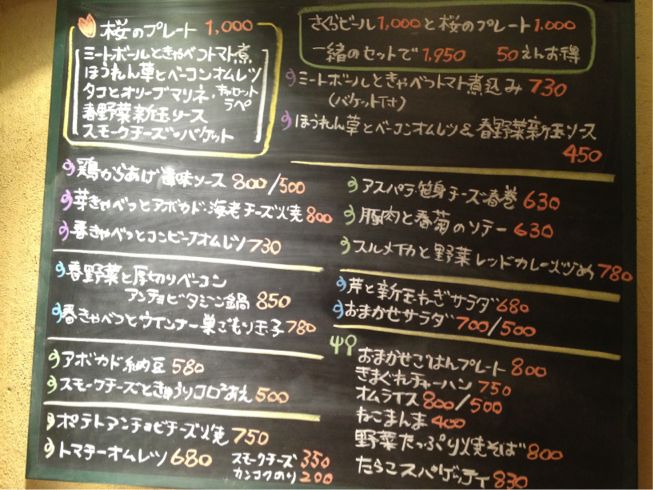 桜のプレート 1,000
ミートボールときゃべつトマト煮
ほうれん草とベーコンオムレツ
タコとオリーブマリネ・キャロットラペ
春野菜新玉ソース
スモークチーズ・バケット
さくらビール1,000と桜のプレート1,000
一緒のセットで 1,950 50えんお得
ミートボールときゃべつトマト煮込み 730
(バケット付き)
ほうれん草とベーコンオムレツ&春野菜新玉ソース
450
鶏からあげ香味ソース 800/500
芽きゃべつとアボカド・海老チーズ焼 800
春きゃべつとコンビーフオムレツ 730
アスパラ・笹身チーズ春巻 630
豚肉と春菊のソテー 630
スルメイカと野菜レッドカレー炒め 780
春野菜と厚切りベーコン
アンチョビタミン鍋 850
春きゃべつとウインナー巣ごもり玉子 780
芹と新玉ねぎサラダ 680
おまかせサラダ 700/500
アボカド納豆 580
スモークチーズときゅうりコロコロあえ 500
ポテトアンチョビチーズ焼 750
トマチーオムレツ 680
スモークチーズ 350
カンコクのり 200
おまかせごはんプレート 800
きまぐれチャーハン 750
オムライス 800/500
ねこまんま 400
野菜たっぷり焼そば 800
たらこスパゲッティ 830